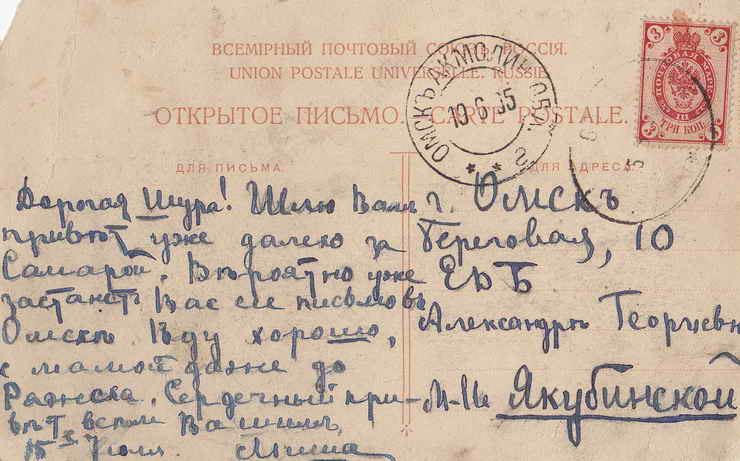 ВСЕМІРНЫЙ ПОЧТОВЫЙ СОЮЗЪ. РОССІЯ.
UNION POSTALE UNIVERSELLE. RUSSIE
ОТКРЫТОЕ ПИСЬМО. CARTE POSTALE.
ОМСКЪ АКМОЛИН. ОБЛ.
19 6 05
3 3
ПОЧТОВАЯ МАРКА
ТРИ КОП.
3 3
5
ДЛЯ ПИСЬМА.
Дорогая Шура! Шлю Вам
привѣт уже далеко за
Самарой. Вѣроятно уже
застанетъ Вас сие письмо въ
Омскѣ. Ѣду хорошо,
с мамой даже до
Ряжска. Сердечный при-
вѣт всем Вашим,
15 Юля. Миша
ДЛЯ АДРЕСА.
г. Омскъ
Береговая, 10
ЕВБ
Александрѣ Георгиевн
М-lle Якубинской